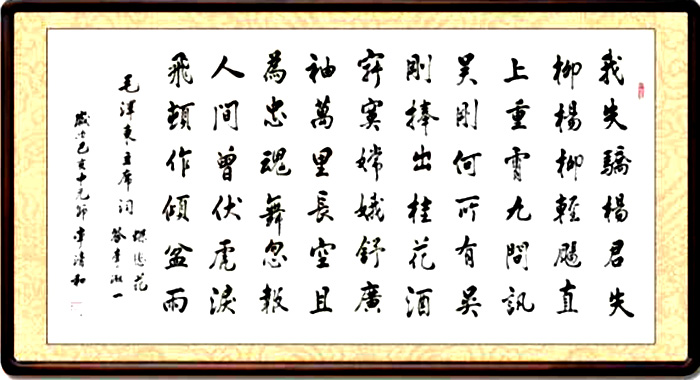 我失驕楊君失
柳楊柳輕颺直
上重霄九問訊
吴剛何所有吴
剛捧出桂花酒
寂寞嫦娥舒廣
袖萬里長空且
為忠魂舞忽報
人間曾伏虎淚
飛頓作傾盆雨
毛澤東主席詞
蝶戀花
答李淑一
歲次己亥清和